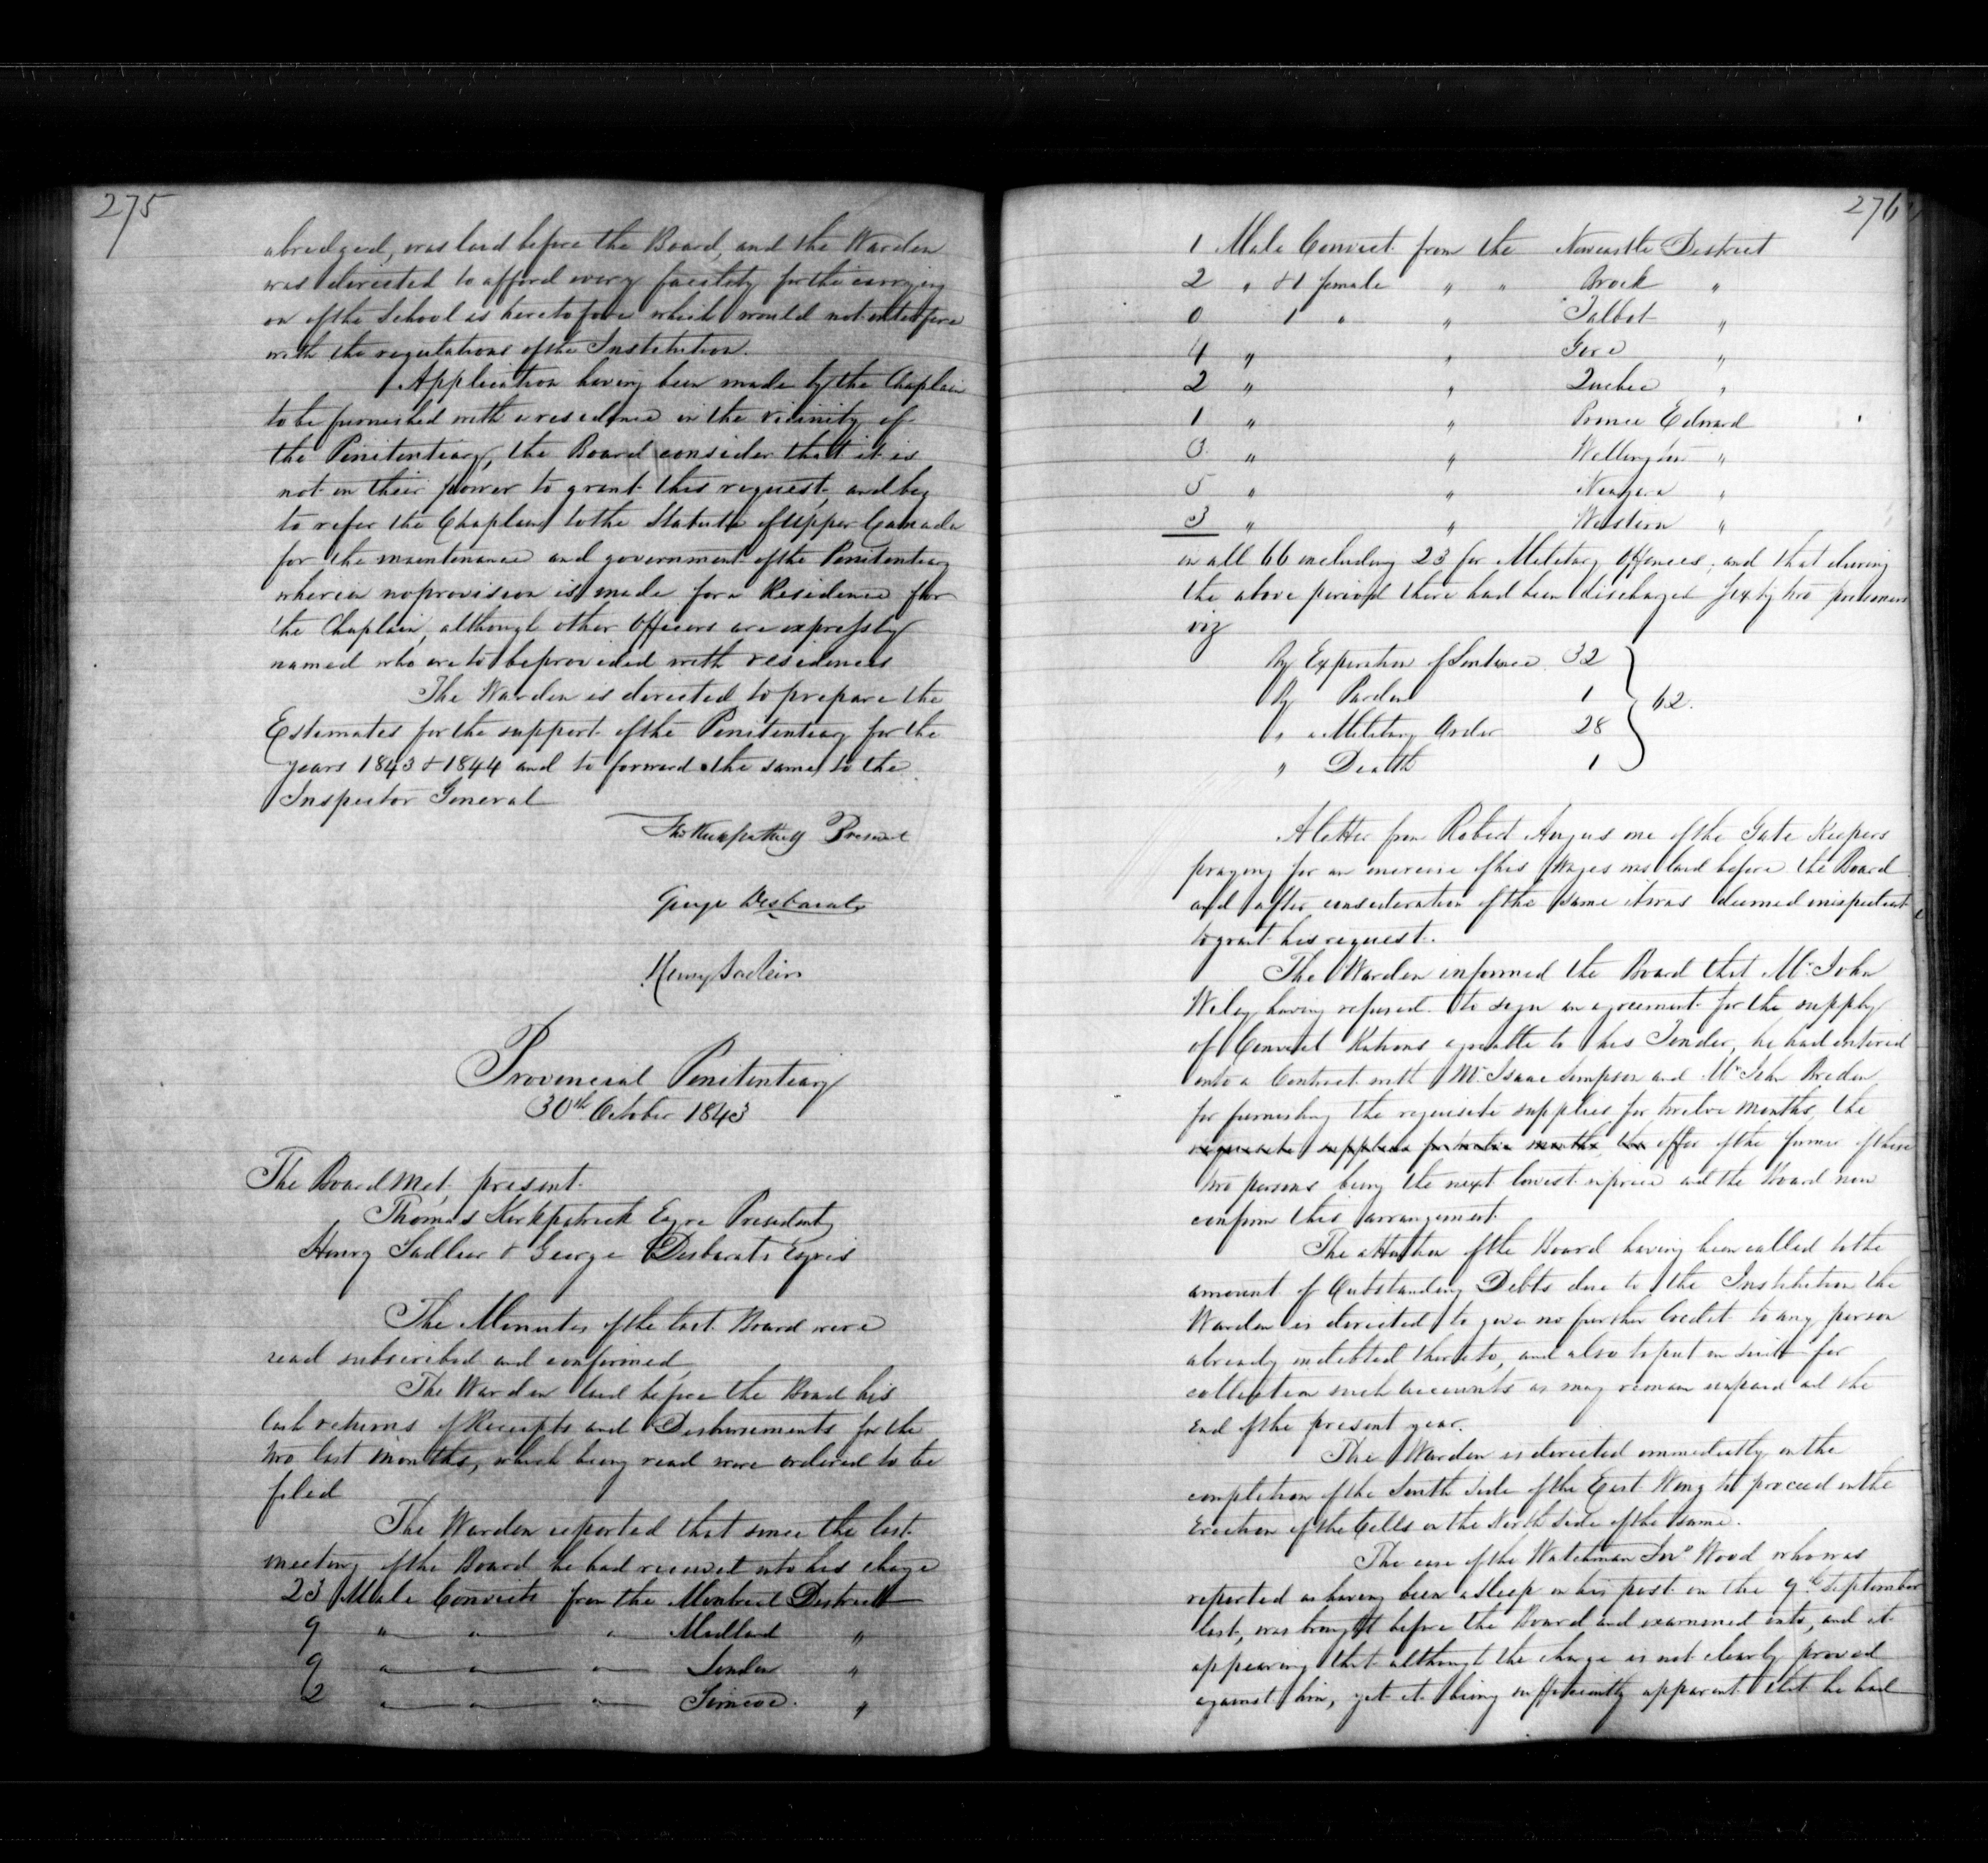 275
abredged, was laid before the Board, and the Warden
was directed to afford every facility for the carrying
on of the School as heretofore which would not interfere
with the regulations of the Institution.
Application having been made by the Chaplain
to be furnished with a residence in the vicinity of
the Penitentiary, the Board consider that it is
not in their power to grant this request, and beg
to refer the Chaplain to the Statute of Upper Canada
for the maintenance and government of the Penitentiary
wherein no provision is made for a Residence for
the Chaplain, although other Officers are expressly
named who are to be provided with residences
The Warden is directed to prepare the
Estimates for the support of the Penitentiary for the
years 1843 & 1844 and to forward the same to the
Inspector General
Thos Kirkpatrick President
George Desbarats
Henry Sadleir
Provincial Penitentiary
30th October 1843
The Board Met, present
Thomas Kirkpatrick Esqre President
Henry Sadleir & George Desbarats Esqres
The Minutes of the last Board were
read subscribed and confirmed
The Warden laid before the Board his
Cash returns of Receipts and Disbursements for the
two last Months, which being read were ordered to be
filed
The Warden reported that since the last
meeting of the Board he had received into his charge
23 Male Convicts from the Montreal District
9 " " " Midland "
9 " " " London "
2 " " " Simcoe. "
276
1 Male Convict from the Newcastle District
2 " & 1 female " " Brock "
0 1 " " Talbot "
4 " " Gore "
2 " " Quebec "
1 " " Prince Edward
3 " " Wellington "
5 " " Niagara "
3 " " Western "
in all 66 including 23 for Military Offences, and that during
the above period there had been discharged Sixty two prisoners
viz
By Expiration of Sentence 32
By Pardon 1
" Military Order 28
" Death 1
62.
A letter from Robert Angus one of the Gate Keepers
praying for an increase of his Wages was laid before the Board
and after consideration of the same it was deemed inexpedient
to grant his request.
The Warden informed the Board that Mr John
Wiley having refused to sign an agreement for the supply
of Convict Rations agreeable to his Tender, he had entered
into a Contract with Mr Isaac Simpson and Mr John Breden
for furnishing the requisite supplies for twelve months, the
requisite supplies for twelve months, the offer of the former of these
two persons being the next lowest in price and the Board now
confirm this arrangement
The attention of the Board having been called to the
amount of Outstanding Debts due to the Institution the
Warden is directed to give no further Credit to any person
already indebted thereto, and also to put in suit for
collection such accounts as may remain unpaid at the
end of the present year.
The Warden is directed immediately on the
completion of the South Side of the East Wing to proceed in the
Erection of the Cells on the North Side of the same.
The case of the Watchman Jno Wood who was
reported as having been asleep on his post on the 9th September
last, was brought before the Board and examined into, and it
appearing that although the charge is not clearly proved
against him, yet it being sufficiently apparent that he had